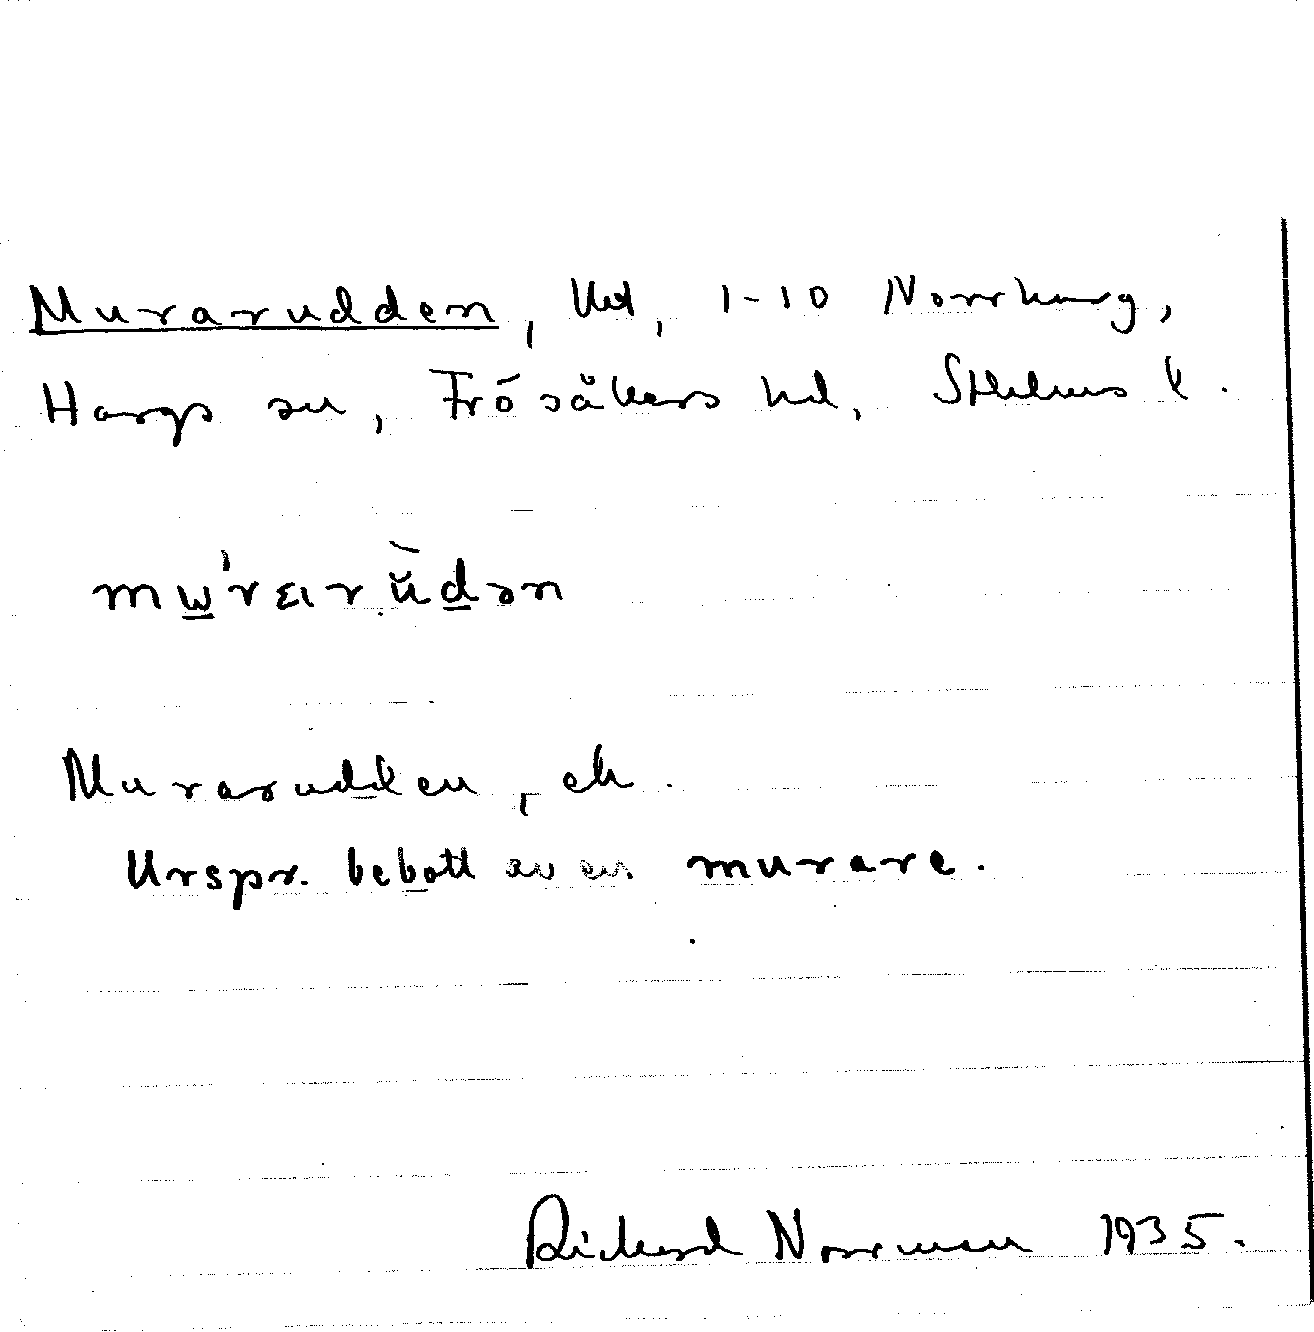 Murarudden, lht, 1-10 Norrharg,
Hargs sn, Frösåkers hd, Sthlms l.
mω̱'rɛırŭ̀d̲ən
Murarudden, eh.
Urspr. bebott av en murare.
Richard Norrman 1935.